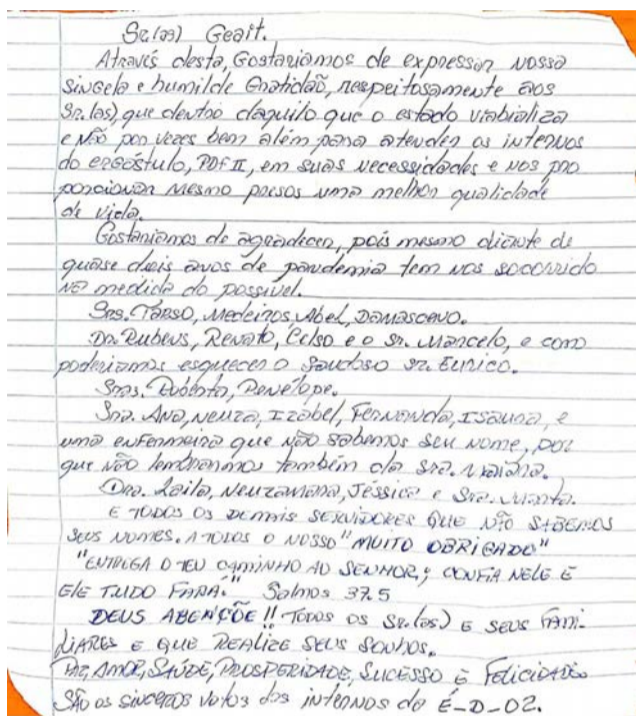 Sr.(as) Geait.
Através desta, Gostariamos de expressar nossa
singela e humilde Gratidão, respeitosamente aos
Sr.(as), que dentro daquilo que o estado viabializa
e não por vezes bem além para atender os internos
do ergástulo, PDF II, em suas necessidades e nos pro
porcionar mesmo presos uma melhor qualidade
de vida.
Gostariamos de agradecer, pois mesmo diante de
quase dois anos de pandemia tem nos socorrido
na medida do possível.
Srs. Tarso, Medeiros, Abel, Damasceno.
Dr. Rubens, Renato, Celso e o sr. Marcelo, e como
poderiamos esquecer o saudoso sr. Eurico.
Sras. Roberta, Penélope.
Sra. Ana, Neuza, Izabel, Fernanda, Isaura, e
uma enfermeira que não sabemos seu nome, por
que não lembrarmos também da sra.
Dra. Laila, Neuzamaria, Jéssica e Sra.
E TODOS OS DEMAIS SERVIDORES QUE NÃO SABEMOS
SEUS NOMES. A TODOS O NOSSO "MUITO OBRIGADO"
"ENTREGA O TEU CAMINHO AO SENHOR; CONFIA NELE E
ELE TUDO FARÁ." Salmos 37.5
DEUS ABENÇÕE!! TODOS OS Sr.(as) E SEUS FAMI-
LIARES E QUE REALIZE SEUS SONHOS.
PAZ, AMOR, SAÚDE, PROSPERIDADE, SUCESSO E FELICIDADES
SÃO os sinceros votos dos internos do É-D-02.